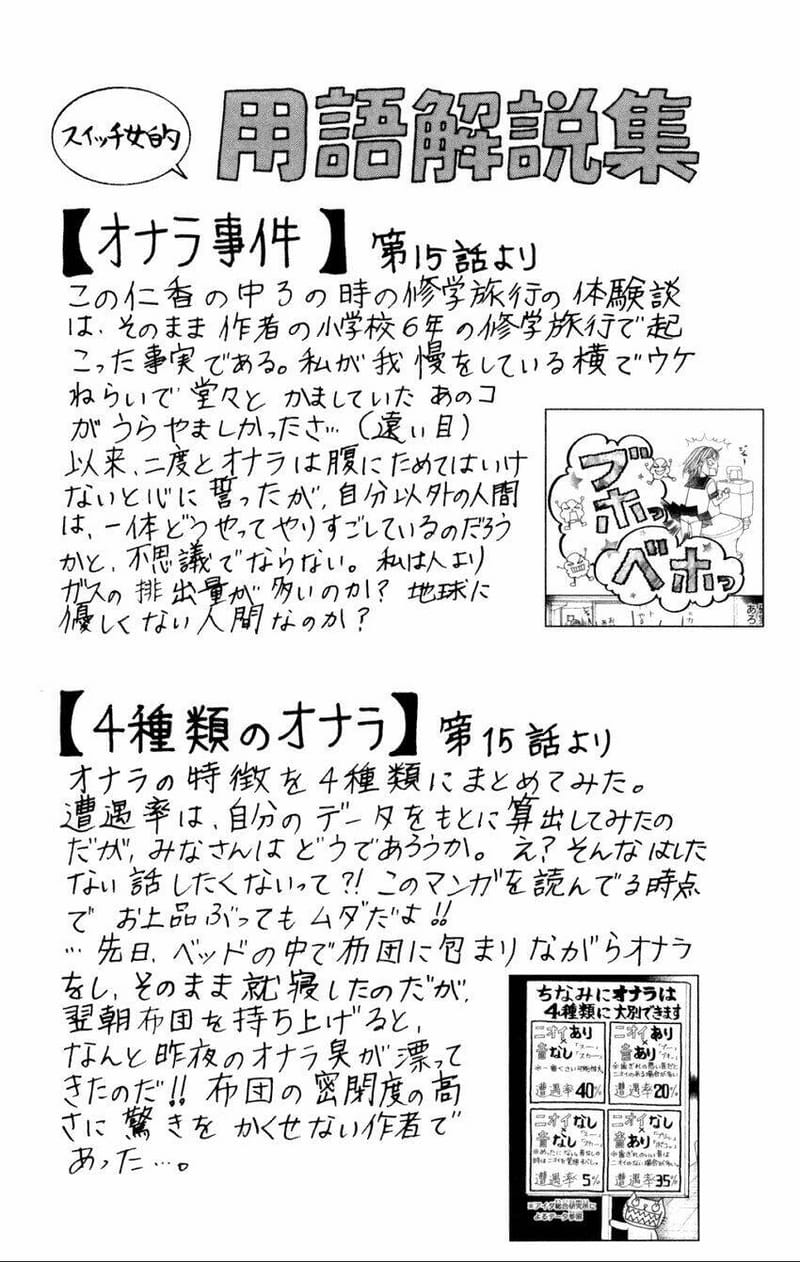 スイッチ女的
用語解説集
【オナラ事件】第15話より
この仁香の中3の時の修学旅行の体験談
は、そのまま作者の小学校6年の修学旅行で起
こった事実である。私が我慢をしている横でウケ
ねらいで堂々とかましていたあのコ
がうらやましかったさ…（遠い目）
以来、二度とオナラは腹にためてはいけ
ないと心に誓ったが、自分以外の人間
は、一体どうやってやりすごしているのだろう
かと、不思議でならない。私は人より
ガスの排出量が多いのか？地球に
優しくない人間なのか？
ブホッ
ベホッ
【4種類のオナラ】第15話より
オナラの特徴を4種類にまとめてみた。
遭遇率は、自分のデータをもとに算出してみたの
だが、みなさんはどうであろうか。え？そんなはした
ない話したくないって？！このマンガを読んでる時点
でお上品ぶってもムダだよ!!
…先日、ベッドの中で布団に包まりながらオナラ
をし、そのまま就寝したのだが、
翌朝布団を持ち上げると、
なんと昨夜のオナラ臭が漂って
きたのだ!!布団の密閉度の高
さに驚きをかくせない作者で
あった…。
ちなみにオナラは
4種類に大別できます
ニオイあり
×
音なし
遭遇率40%
ニオイあり
×
音あり
遭遇率20%
ニオイなし
×
音なし
遭遇率5%
ニオイなし
×
音あり
遭遇率35%